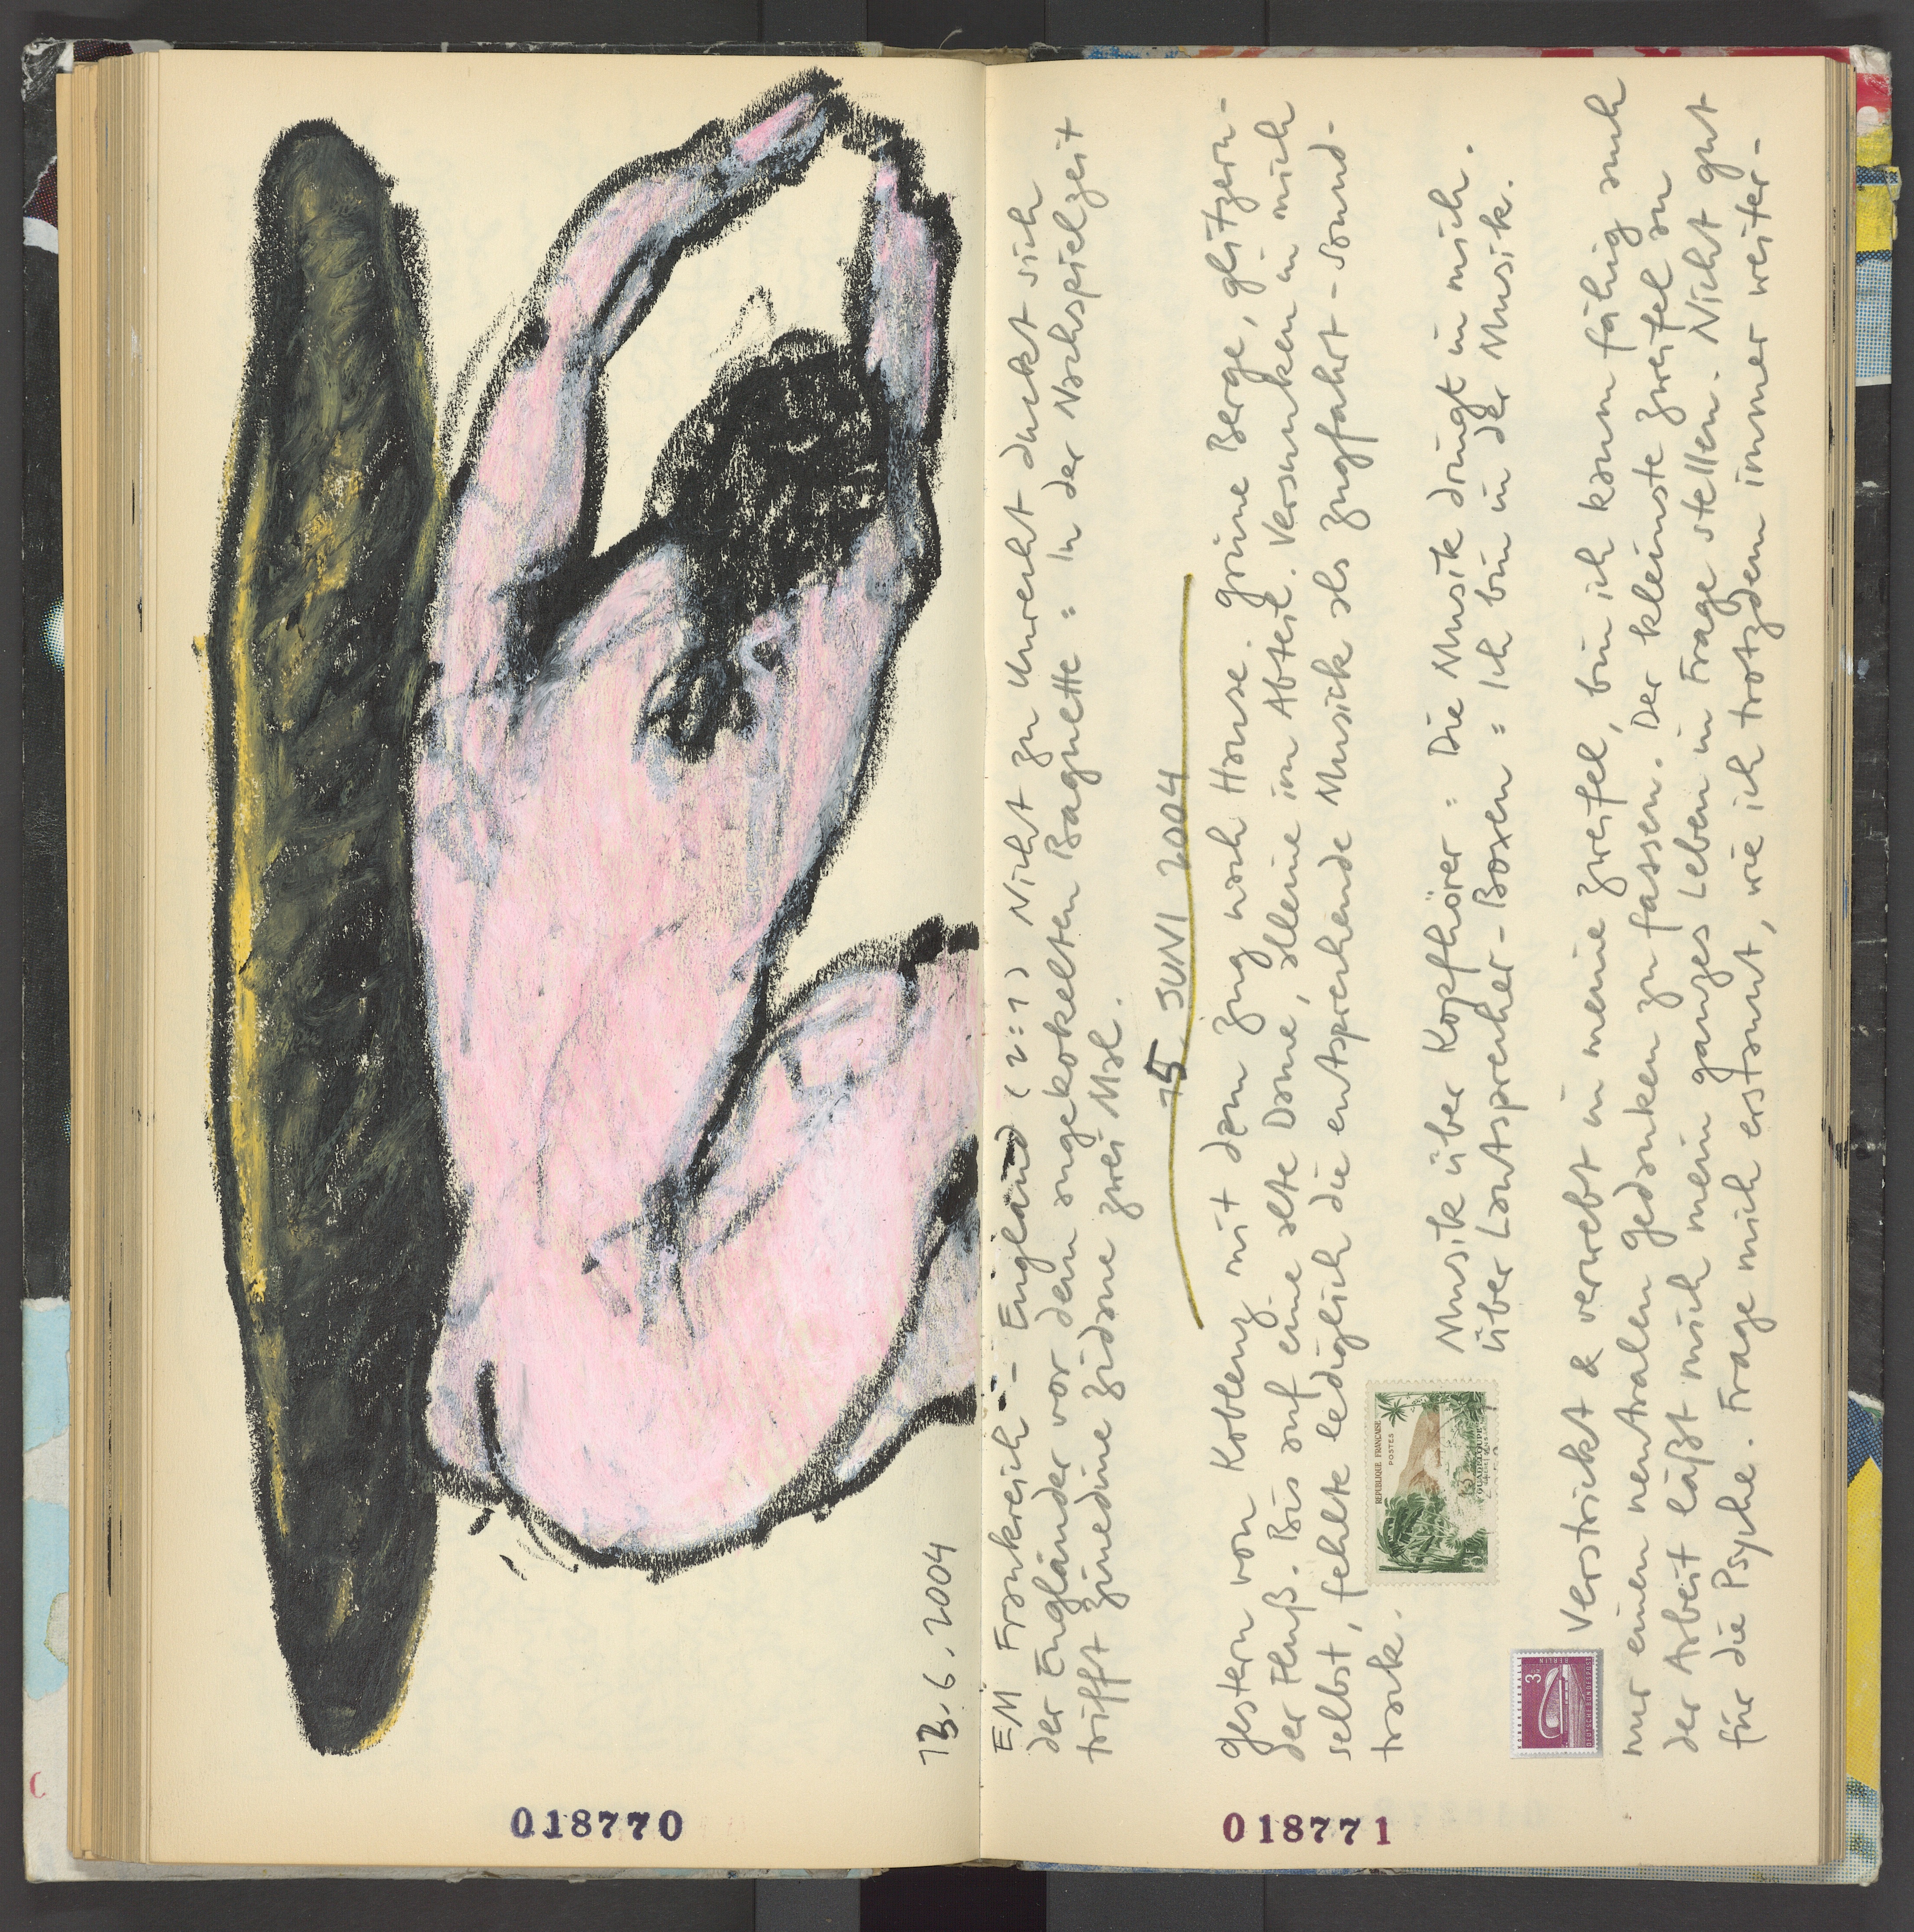 13.6.2004
EM Frankreich - England (2:1) Nicht zu Unrecht duckt sich
der Engländer vor dem angekokelten Baguette : In der Nachspielzeit
trifft Zinedine Zidane zwei Mal.
15. JUNI 2004
Gestern von Koblenz mit dem Zug nach Hause. Grüne Berge, glitzern-
der Fluß. Bis auf eine alte Dame, alleine im Abteil. Versunken in mich
selbst, fehlte lediglich die entsprechende Musik als Zugfahrt-Sound-
track.
Musik über Kopfhörer : Die Musik dringt in mich.
über Lautsprecher-Boxen : Ich bin in der Musik.
Verstrickt & verwebt in meine Zweifel, bin ich kaum fähig auch
nur einen neutralen Gedanken zu fassen. Der kleinste Zweifel an
der Arbeit läßt mich mein ganzes Leben in Frage stellen. Nicht gut
für die Psyche. Frage mich erstaunt, wie ich trotzdem immer weiter-
REPUBLIQUE FRANÇAISE
POSTES
GUADELOUPE
3
BERLIN
DEUTSCHE BUNDESPOST
018770
018771